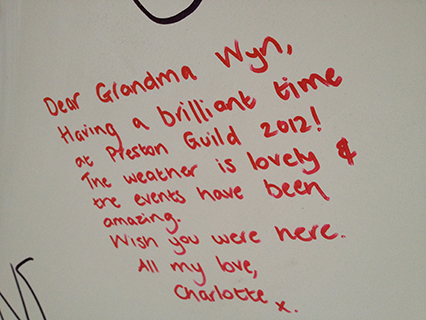 Dear Grandma Wyn,
Having a brilliant time
at Preston Guild 2012!
The weather is lovely &
the events have been
amazing.
Wish you were here.
All my love,
Charlotte x.